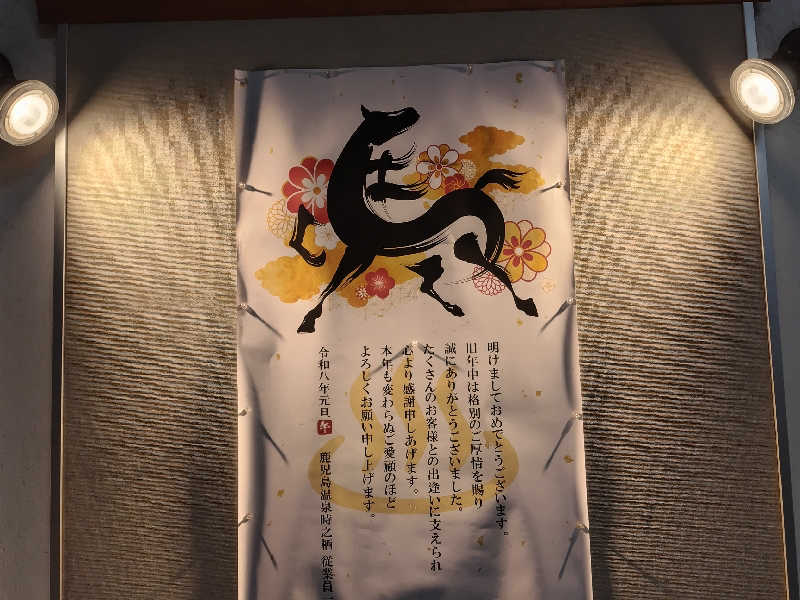 明けましておめでとうございます。
旧年中は格別のご厚情を賜り
誠にありがとうございました。
たくさんのお客様との出逢いに支えられ
心より感謝申しあげます。
本年も変わらぬご愛顧のほど
よろしくお願い申し上げます。
令和八年元旦 午 鹿児島温泉時之栖 従業員一